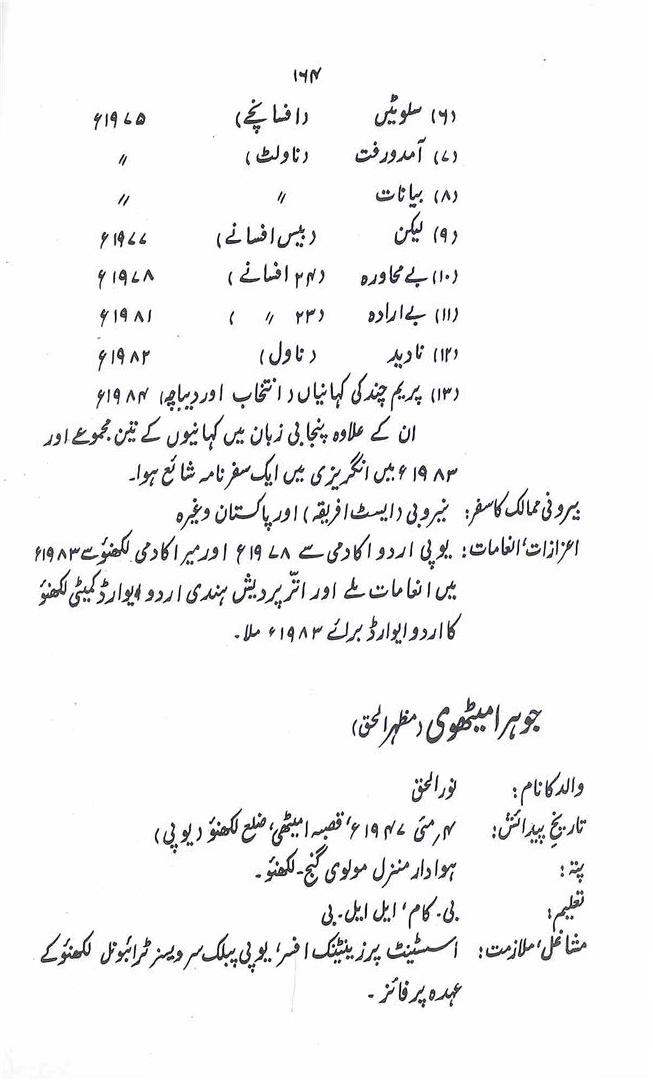 ۱۶۴
(۶) سلوٹیں (افسانچے) ۱۹۷۵ء
(۷) آمدورفت (ناولٹ) 〃
(۸) بیانات 〃 〃
(۹) لیکن (بیس افسانے) ۱۹۷۷ء
(۱۰) بے محاورہ (۲۴ افسانے) ۱۹۷۸ء
(۱۱) بے ارادہ (۲۳ 〃) ۱۹۸۱ء
(۱۲) نادید (ناول) ۱۹۸۲ء
(۱۳) پریم چند کی کہانیاں (انتخاب اور دیباچہ) ۱۹۸۴ء
ان کے علاوہ پنجابی زبان میں کہانیوں کے تین مجموعے اور
۱۹۸۳ء میں انگریزی میں ایک سفرنامہ شائع ہوا۔
بیرونی ممالک کا سفر: نیروبی (ایسٹ افریقہ) اور پاکستان وغیرہ
اعزازات، انعامات: یوپی اردو اکادمی سے ۱۹۷۸ء اور میر اکادمی لکھنؤ سے ۱۹۸۳ء
میں انعامات ملے اور اتّر پردیش ہندی اردو ایوارڈ کمیٹی لکھنؤ
کا اردو ایوارڈ برائے ۱۹۸۳ء ملا۔
جوہر امیٹھوی (مظہر الحق)
والد کا نام: نور الحق
تاریخ پیدائش: ۴ مئی ۱۹۴۷ء، قصبہ امیٹھی، ضلع لکھنؤ (یوپی)
پتہ: ہوادار منزل مولوی گنج۔ لکھنؤ۔
تعلیم: بی۔ کام، ایل ایل۔ بی
مشاغل، ملازمت: اسسٹینٹ پرزینٹنگ افسر، یوپی پبلک سرویسز ٹرائبونل لکھنؤ کے
عہدہ پر فائز۔